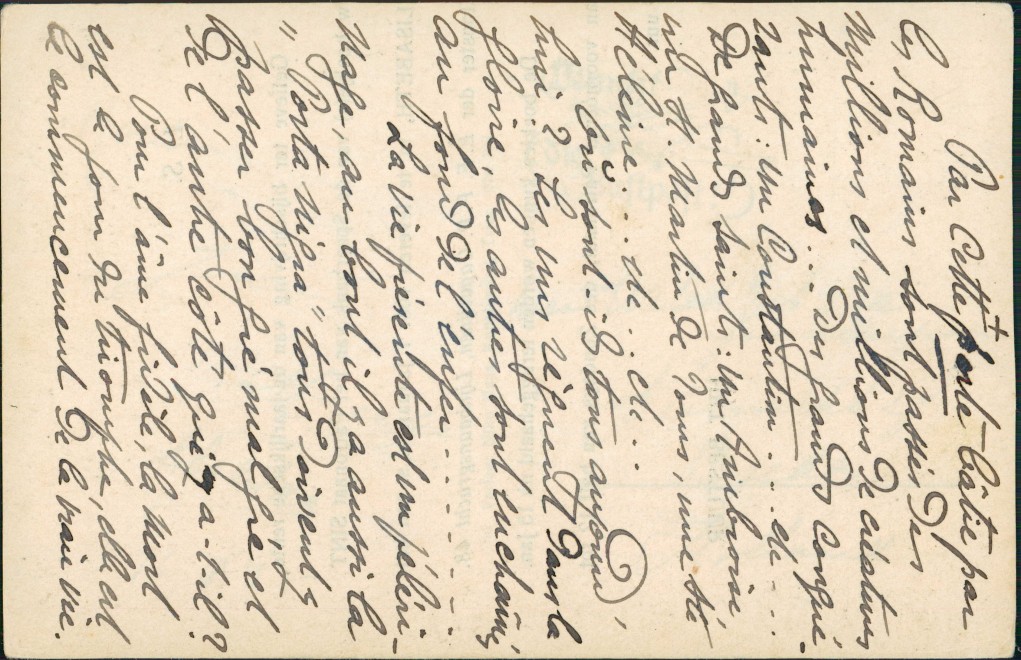 Par cette porte bâtie par
les Romains sont passés des
millions et millions de créatures
humaines... Des grands conqué-
rants: un Constantin... etc...
De grands saints: un Ambroise
un St Martin de Tours, une Ste
Hélène... etc. etc..
Où sont-ils tous aujourd'
hui? Les uns règnent dans la
gloire, les autres sont enchaînés
au fond de l'enfer........
La vie présente est un pèleri-
nage, au bout il y a aussi la
"Porta nigra" tous doivent y
passer bon gré mal gré et
de l'autre côté qu'y a-t-il?
Pour l'âme fidèle, la mort
est le jour du triomphe, elle est
le commencement de la vraie vie.